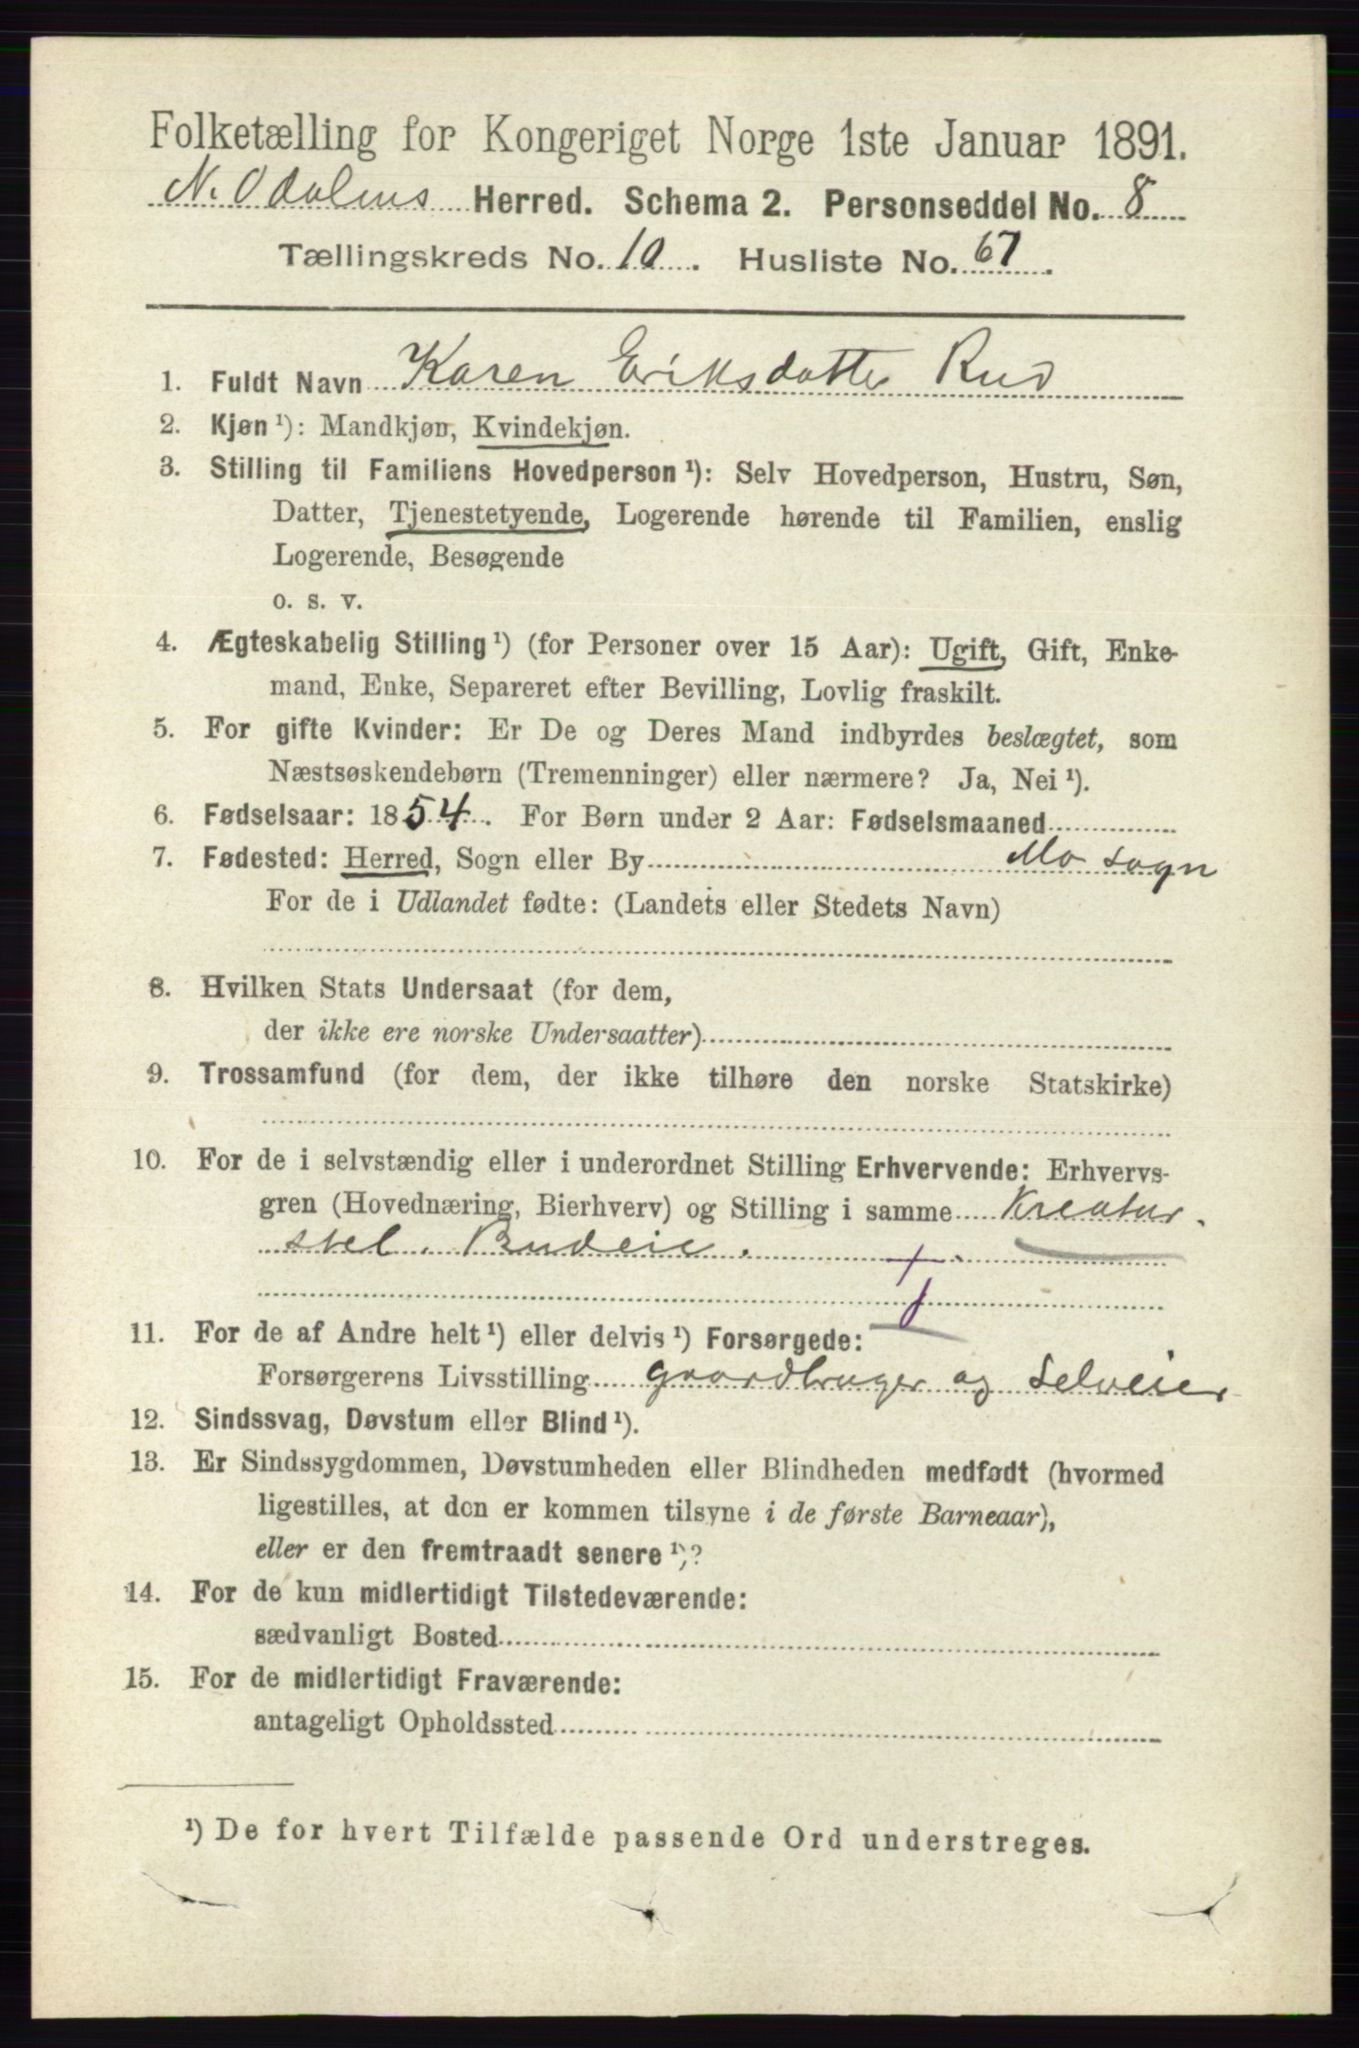 Folketælling for Kongeriget Norge 1ste Januar 1891.
N. Odalens Herred. Schema 2. Personseddel No. 8
Tællingskreds No. 10. Husliste No. 67.
1. Fuldt Navn Karen Eriksdatter Rud
2. Kjøn ¹): Mandkjøn, Kvindekjøn.
3. Stilling til Familiens Hovedperson ¹): Selv Hovedperson, Hustru, Søn,
Datter, Tjenestetyende, Logerende hørende til Familien, enslig
Logerende, Besøgende
o. s. v.
4. Ægteskabelig Stilling ¹) (for Personer over 15 Aar): Ugift, Gift, Enke-
mand, Enke, Separeret efter Bevilling, Lovlig fraskilt.
5. For gifte Kvinder: Er De og Deres Mand indbyrdes beslægtet, som
Næstsøskendebørn (Tremenninger) eller nærmere? Ja, Nei ¹).
6. Fødselsaar: 1854. For Børn under 2 Aar: Fødselsmaaned
7. Fødested: Herred, Sogn eller By Mo sogn
For de i Udlandet fødte: (Landets eller Stedets Navn)
8. Hvilken Stats Undersaat (for dem,
der ikke ere norske Undersaatter)
9. Trossamfund (for dem, der ikke tilhøre den norske Statskirke)
10. For de i selvstændig eller i underordnet Stilling Erhvervende: Erhvervs-
gren (Hovednæring, Bierhverv) og Stilling i samme Kreatur-
stel. Budeie.
11. For de af Andre helt ¹) eller delvis ¹) Forsørgede:
Forsørgerens Livsstilling gaardbruger og Selveier
12. Sindssvag, Døvstum eller Blind ¹).
13. Er Sindssygdommen, Døvstumheden eller Blindheden medfødt (hvormed
ligestilles, at den er kommen tilsyne i de første Barneaar),
eller er den fremtraadt senere ¹)?
14. For de kun midlertidigt Tilstedeværende:
sædvanligt Bosted
15. For de midlertidigt Fraværende:
antageligt Opholdssted
¹) De for hvert Tilfælde passende Ord understreges.